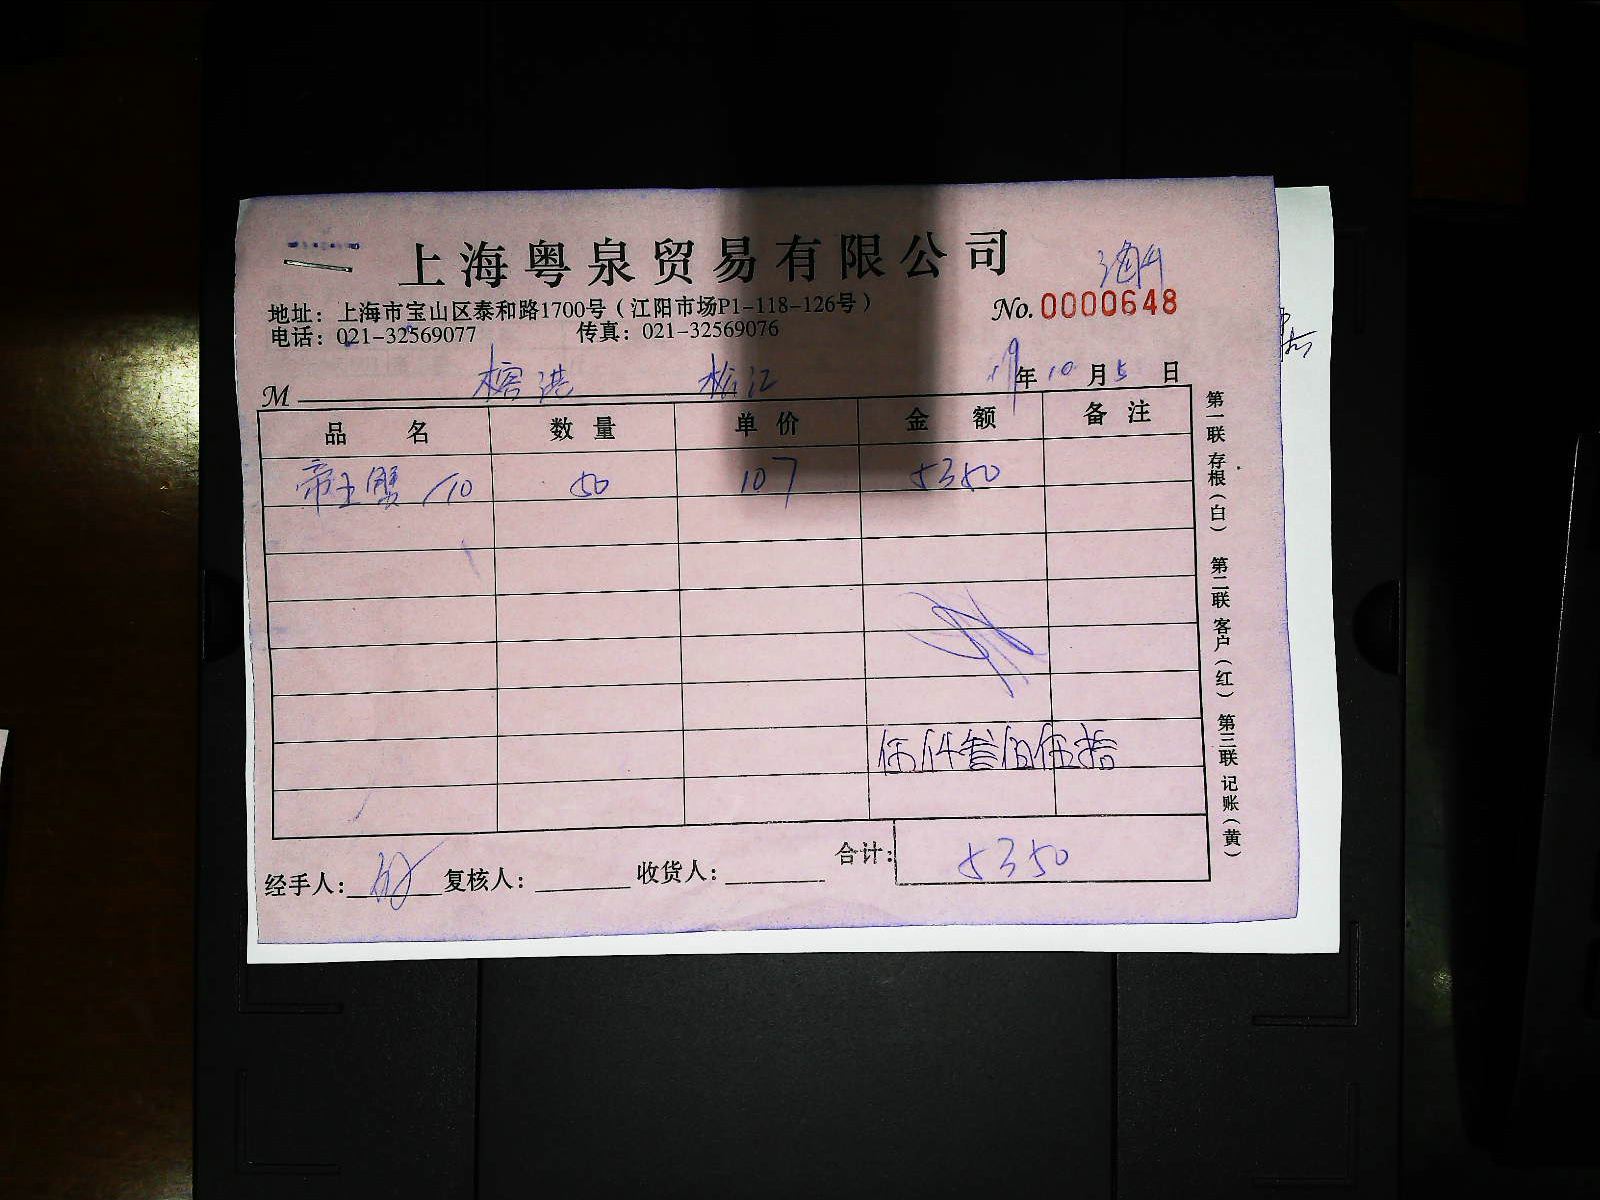 上海粤泉贸易有限公司
地址：上海市宝山区泰和路1700号（江阳市场P1-118-126号）
No. 0000648
电话：021-32569077 传真：021-32569076
M
19年10月5日
品名 数量 单价 金额 备注
帝王蟹/10 50 107 5350
伍仟叁佰伍拾
合计：5350
经手人： 复核人： 收货人：
第一联 存根（白） 第二联 客户（红） 第三联 记账（黄）